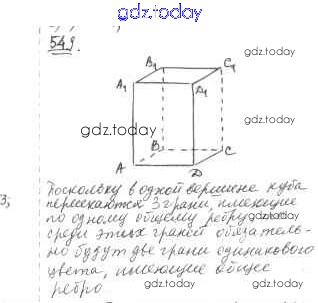 gdz.today
549.
gdz.today
B₁ C₁
A₁ D₁
gdz.today
B C
A D
3;
Поскольку в одной вершине куба
пересекаются 3 грани, имеющие
по одному общему ребру, то
среди этих граней обязатель-
но будут две грани одинакового
цвета, имеющие общее
ребро
gdz.today